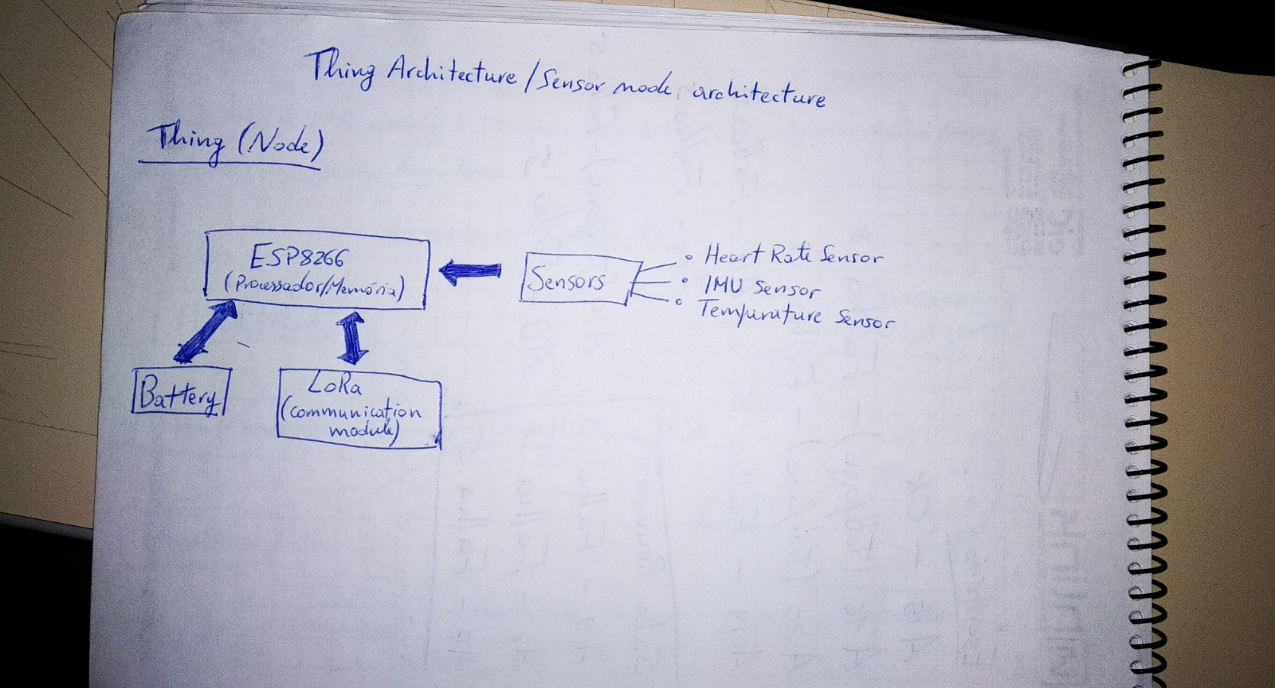 Thing Architecture / Sensor node architecture
Thing (Node)
ESP8266
(Processador/Memória)
Sensors
Heart Rate Sensor
IMU Sensor
Temperature Sensor
Battery
LoRa
(communication
module)